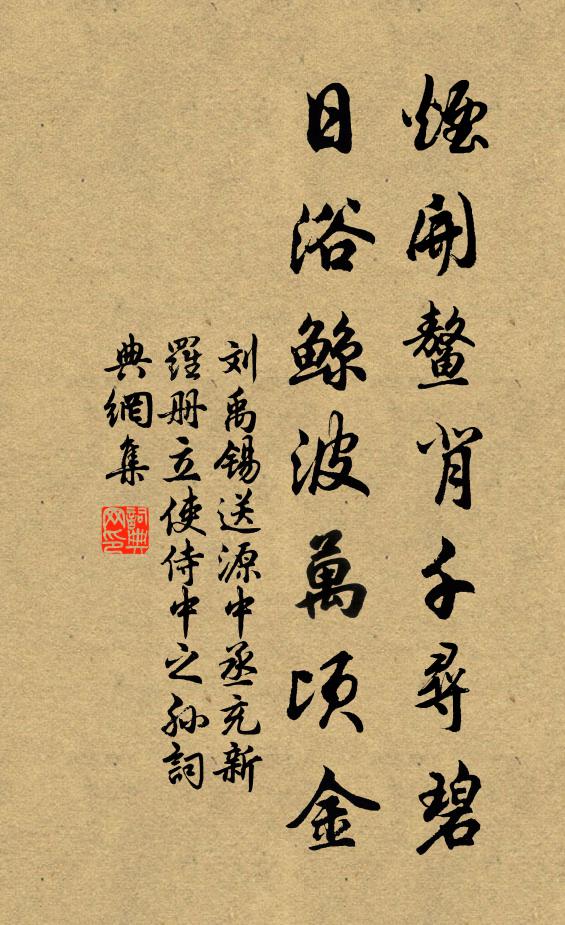 煙開鼇背千尋碧
日浴鯨波萬頃金
刘禹锡送源中丞充新
羅册立使侍中之孙詞
典網集
詞典網印